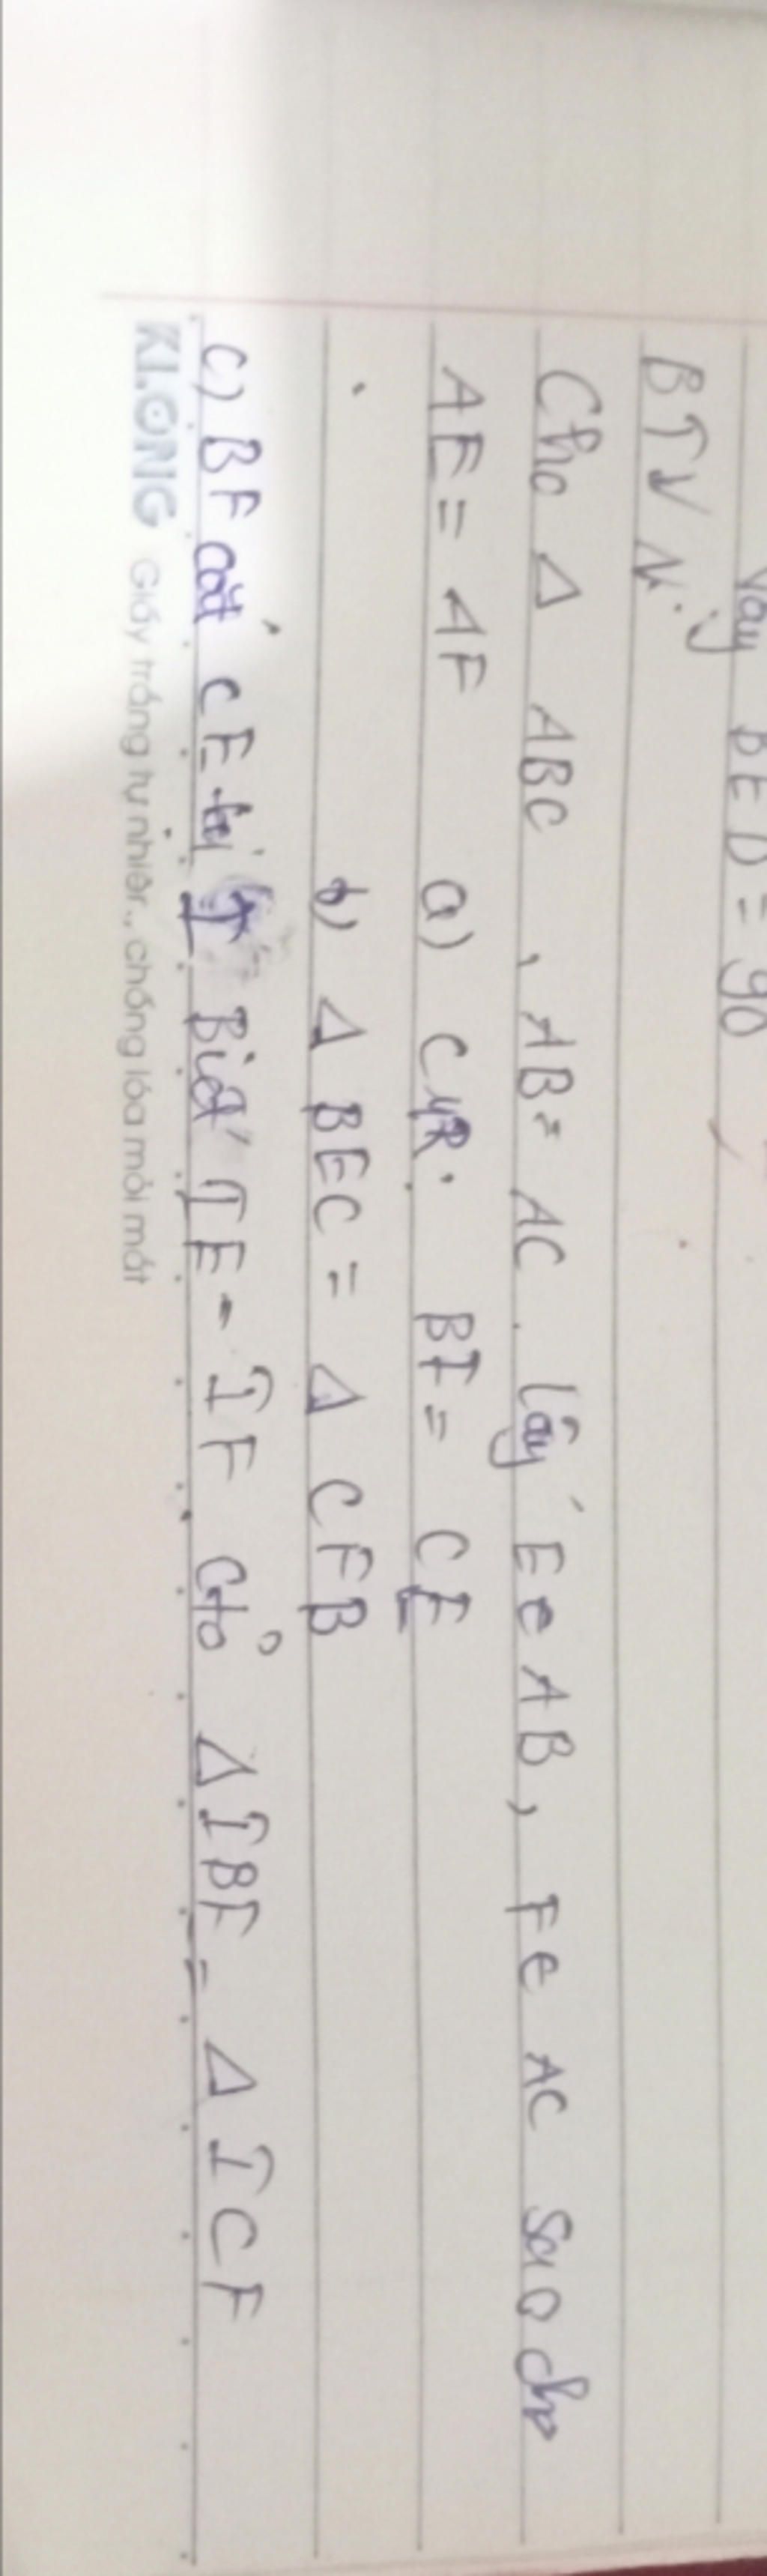 Vậy BED = 90
BTVN:
Cho Δ ABC , AB = AC . Lấy E ∈ AB, F ∈ AC sao cho
AE = AF a) CMR. BF = CE
b) Δ BEC = Δ CFB
c) BF cắt CE tại I Biết IE = IF. C/tỏ Δ IBE = Δ ICF
KLONG Giấy trắng tự nhiên, chống lóa mỏi mắt